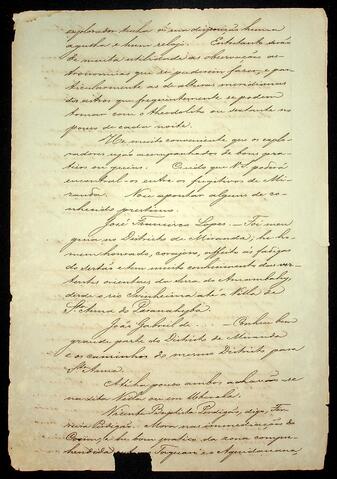 explorador tenha á sua disposição huma
agulha e hum relogio. Entretanto serão
de muita utilidade as observações as-
tronomicas que se puderem fazer, e par-
ticularmente as de alturas meridianas
dos astros que frequentemente se podem
tomar com o theodolito ou sextante no
pouso de cada noite.
He muito conveniente que os explo-
radores sejão acompanhados de bons pra-
ticos ou guias. Cuido que V.S. poderá
encontral-os entre os fugitivos de Mi-
randa. Vou apontar alguns de co-
nhecido prestimo.
José Francisco Lopes — Foi meu
guia no Districto de Miranda; he ho-
mem honrado, corajoso, affeito ás fadigas
do sertão e tem muito conhecimento das ver-
tentes orientaes da Serra de Amambahy,
desde o rio Ivinheima até a Villa de
Sta Anna do Paranahyba.
João Gabriel de — Conhece bem
grande parte do Districto de Miranda
e os caminhos do mesmo Districto para
Sta Anna.
Atiha pouco ambos achavão-se
na dita Villa ou em Uberaba.
Vicente Baptista Perdigão, digo, Fer-
reira Perdigão. Mora nas immediações do
Coxim, e he bom pratico da zona compre-
hendida entre Taquari e Aquidauana